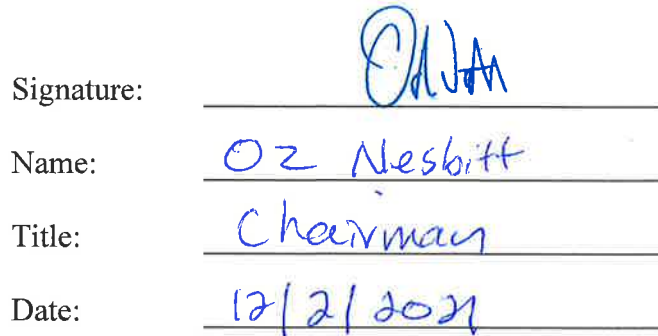 Signature:
Name: OZ Nesbitt
Title: Chairman
Date: 12/2/2021